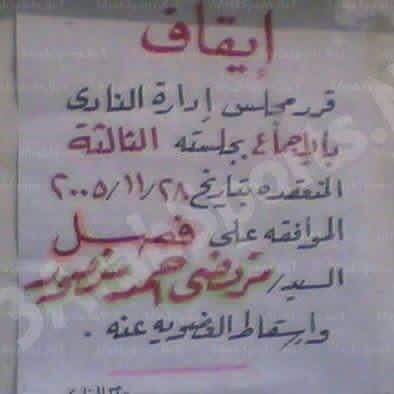 إيقاف
قرر مجلس إدارة النادى
بالإجماع بجلسته الثالثة
المنعقده بتاريخ ٢٠٠٥/١١/٢٨
الموافقه على فصل
السيد/ مرتضى احمد منصور
وإسقاط العضويه عنه .